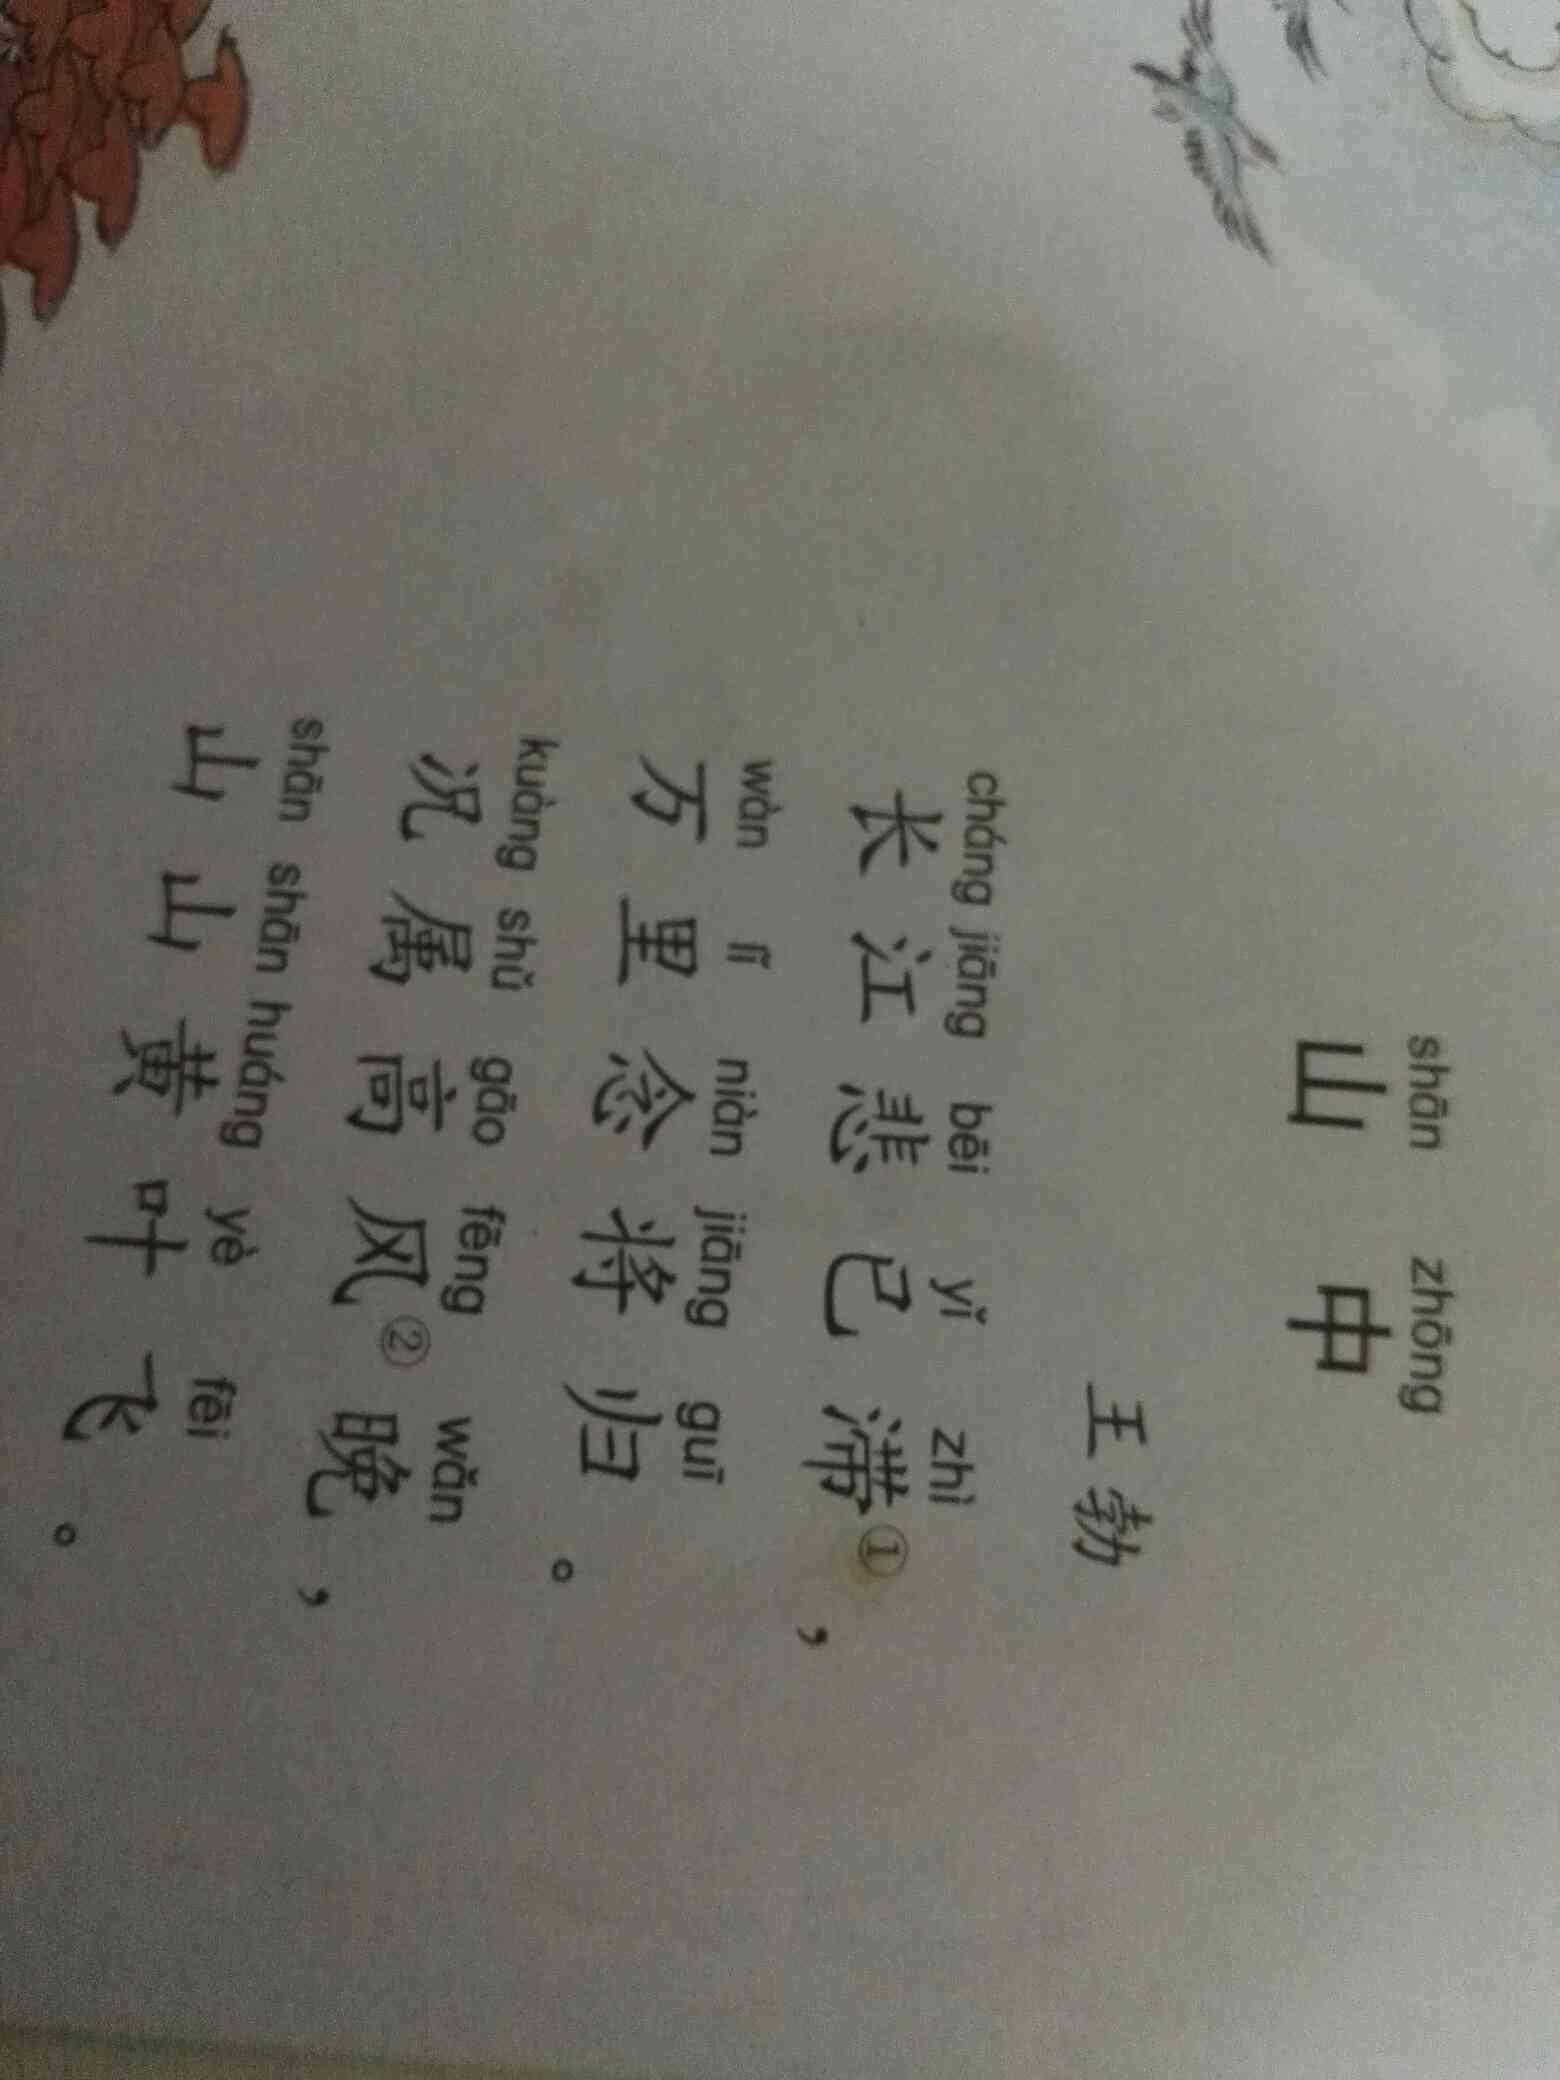 shān zhōng
山 中
王 勃
cháng jiāng bēi yǐ zhì
长 江 悲 已 滞①，
wàn lǐ niàn jiāng guī
万 里 念 将 归。
kuàng shǔ gāo fēng wǎn
况 属 高 风② 晚，
shān shān huáng yè fēi
山 山 黄 叶 飞。